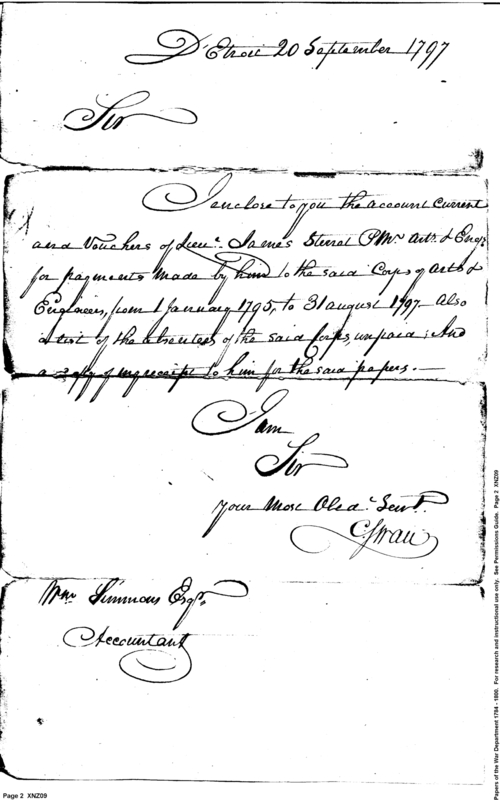 D'Etroit 20 September 1797
Sir
I enclose to you the account current
and Vouchers of Lieut. James Sterret P Mr. Arts. & Engrs
for payments made by him to the said Corps of Arts &
Engineers, from 1 January 1795, to 31 august 1797. Also
a list of the absentees of the said Corps, unpaid; And
a Copy of my receipt to him for the said papers.—
I am
Sir
your Most Obdt. Servt.
C Swan
Wm. Simmons Esqr.
Accountant
Page 2 XNZ09
Papers of the War Department 1784 - 1800. For research and instructional use only. See Permissions Guide. Page 2 XNZ09